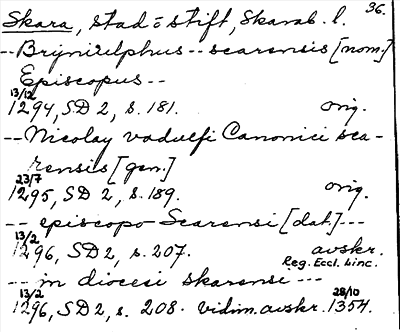 36.
Skara, stad o stift, Skarab. l.
-- Brynizelphus -- scarensis [nom.]
Episcopus --
13/12
1294, SD 2, s. 181. orig.
-- Nicolay vaduefi Canonici sca-
rensis [gen.]
23/7
1295, SD 2, s. 189. orig.
-- episcopo Scarensi [dat.] ---
13/2
1296, SD 2, s. 207. avskr.
Reg. Eccl. Linc.
-- in diocesi skarensi ---
13/2 28/10
1296, SD 2, s. 208. vidim. avskr. 1354.